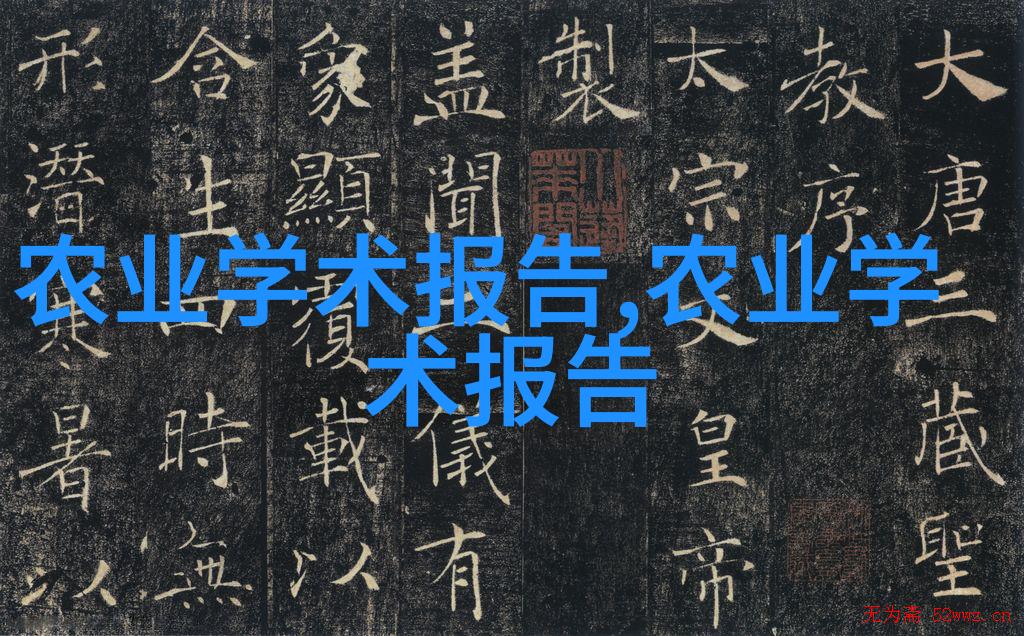 大唐三藏聖
教序
太宗文皇帝
製
盖聞二儀有
象顯覆載以
含生四時無
形潛寒暑以
农业学术报告,农业学
术报告
无为斋 52wwz.cn